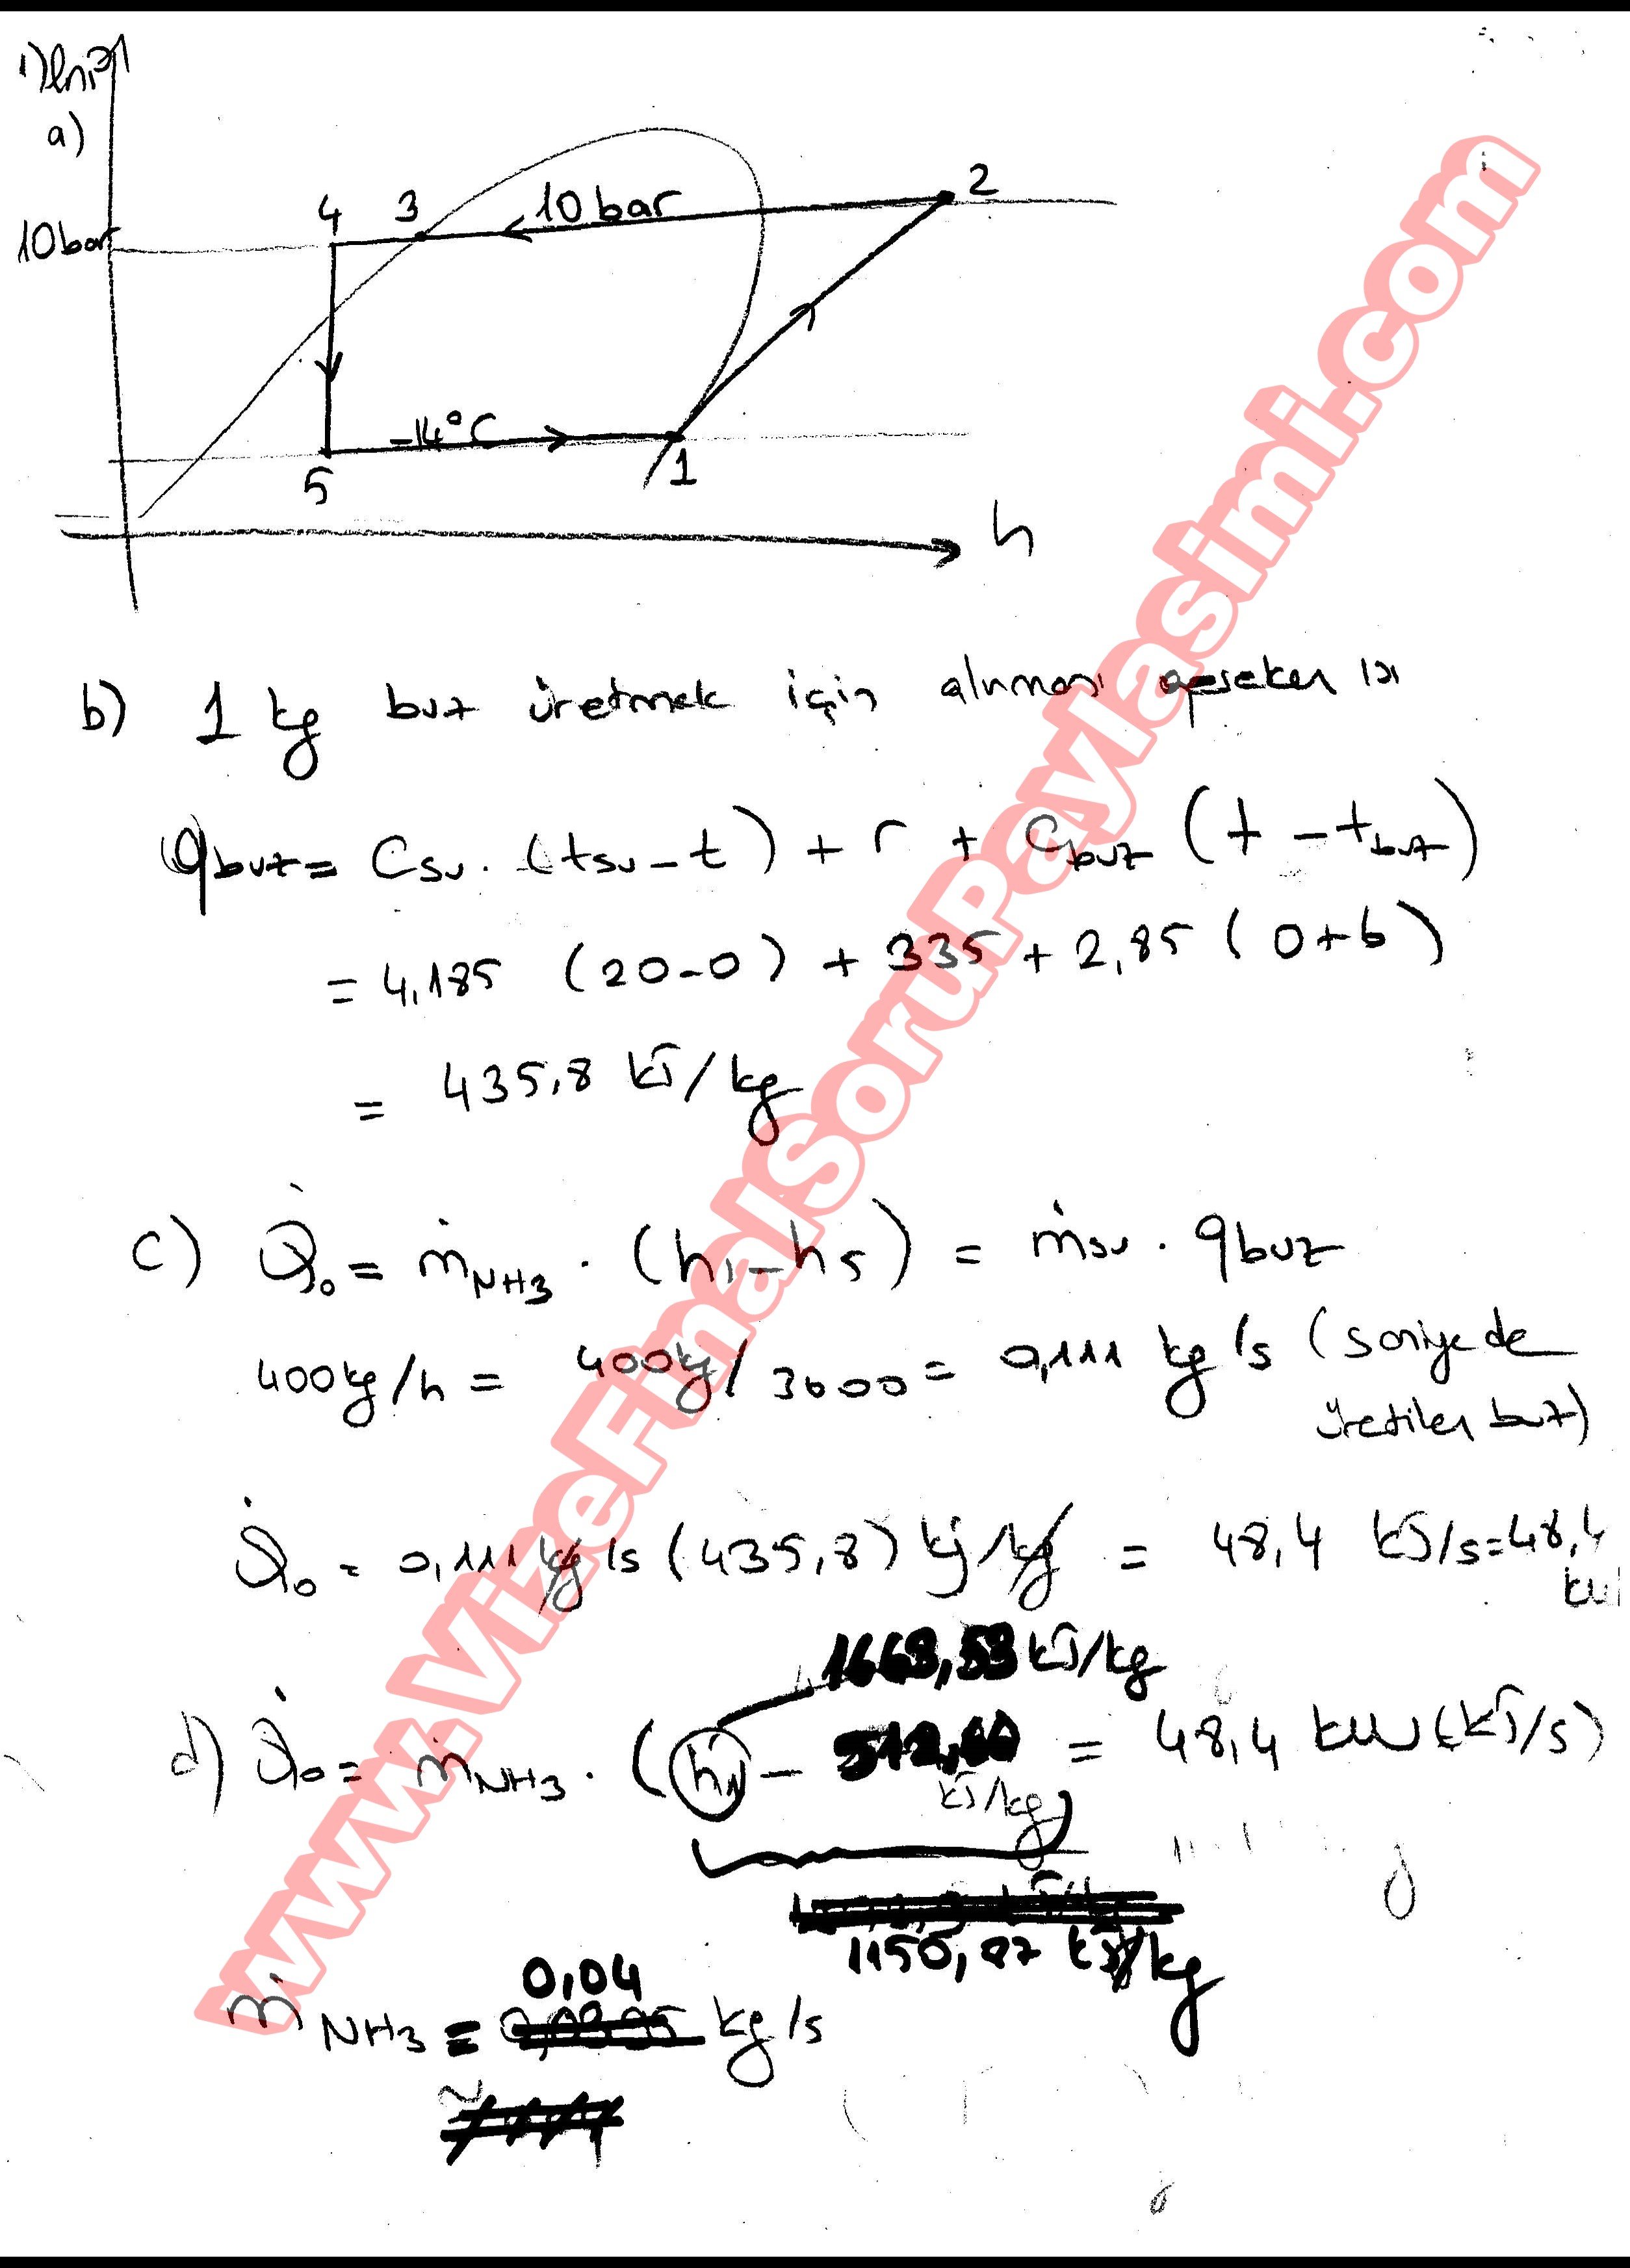 1) lnP
a)
10bar
4 3 10 bar 2
-14°C
5 1
h
b) 1 kg buz üretmek için alınması gereken ısı
qbuz = Csu . (tsu - t) + r + Cbuz (t - tbuz)
= 4,185 (20-0) + 335 + 2,85 (0+6)
= 435,8 kJ/kg
c) Q̇o = ṁNH3 . (h1 - h5) = ṁsu . qbuz
400kg/h = 400kg/3600 = 0,111 kg/s (saniyede
üretilen buz)
Q̇o = 0,111 kg/s (435,8) kj/kg = 48,4 kJ/s = 48,4
kW
1663,53 kJ/kg
d) Q̇o = ṁNH3 . (h1 - 512,60 = 48,4 kW (kJ/s)
kJ/kg)
1150,87 kJ/kg
0,04
ṁNH3 = kg/s
www.VizeFinalSoruPaylasimi.com